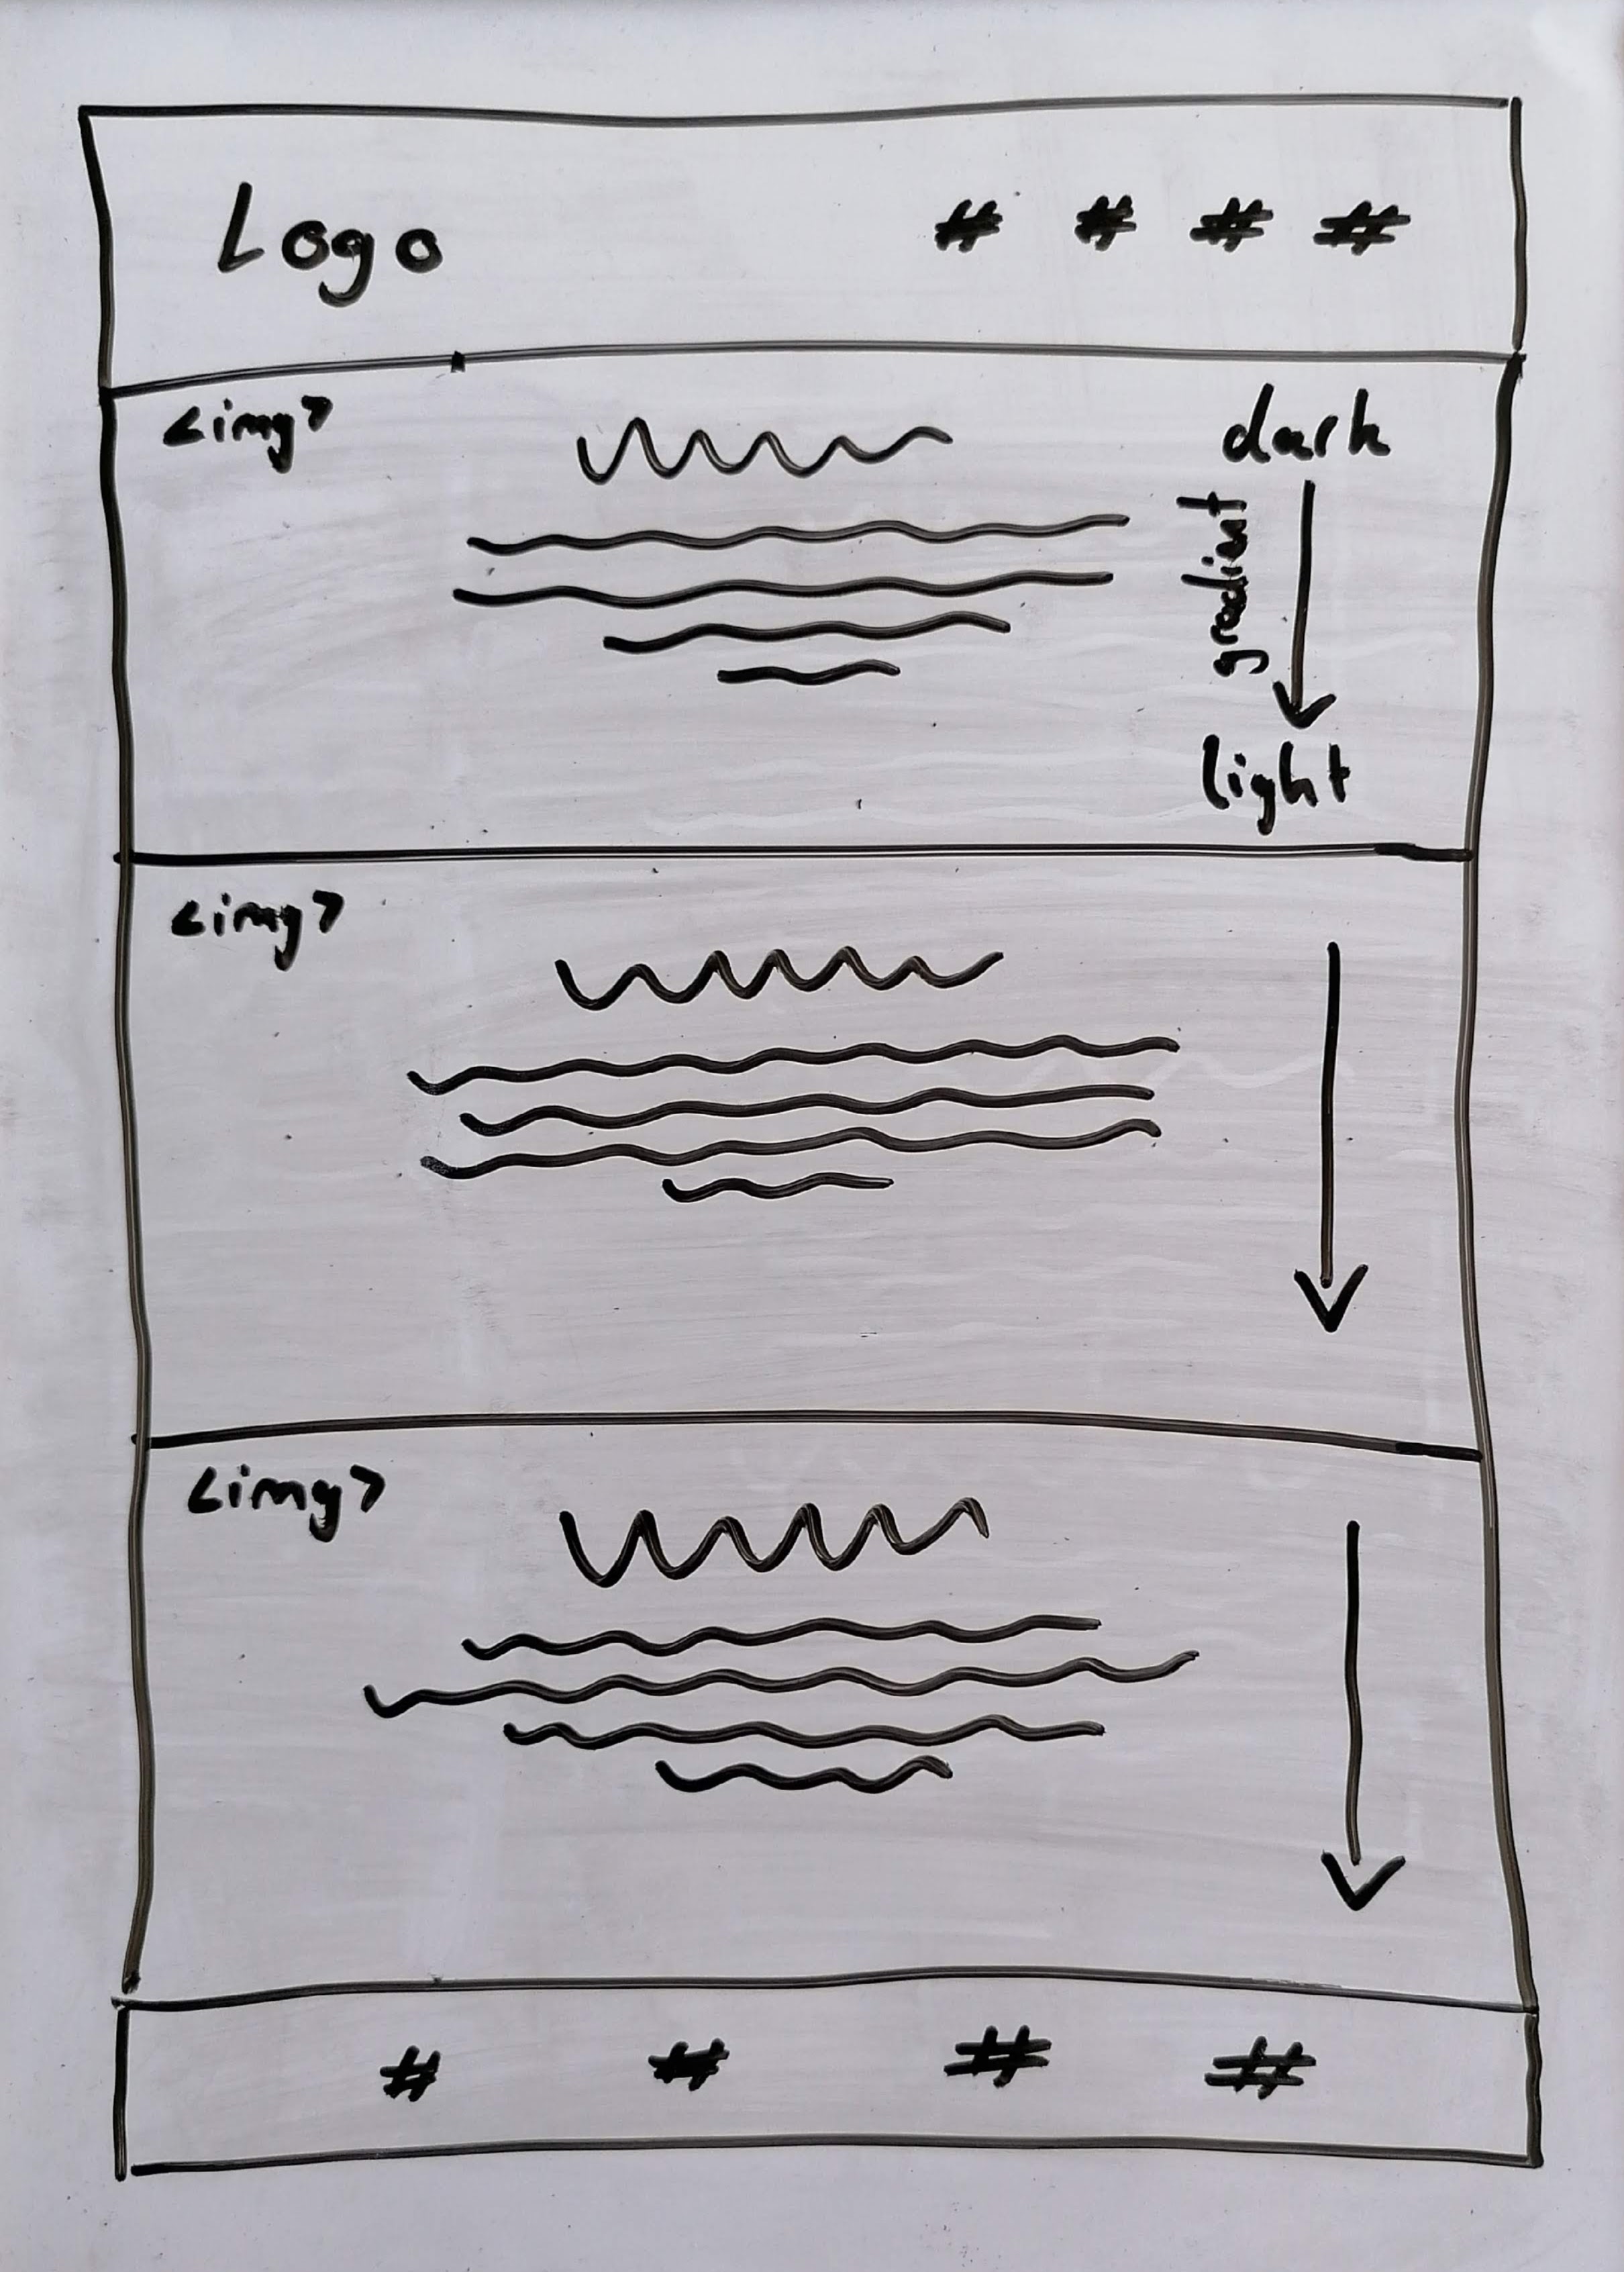 Logo # # # #
<img>
dark
gradient
light
<img>
<img>
# # # #